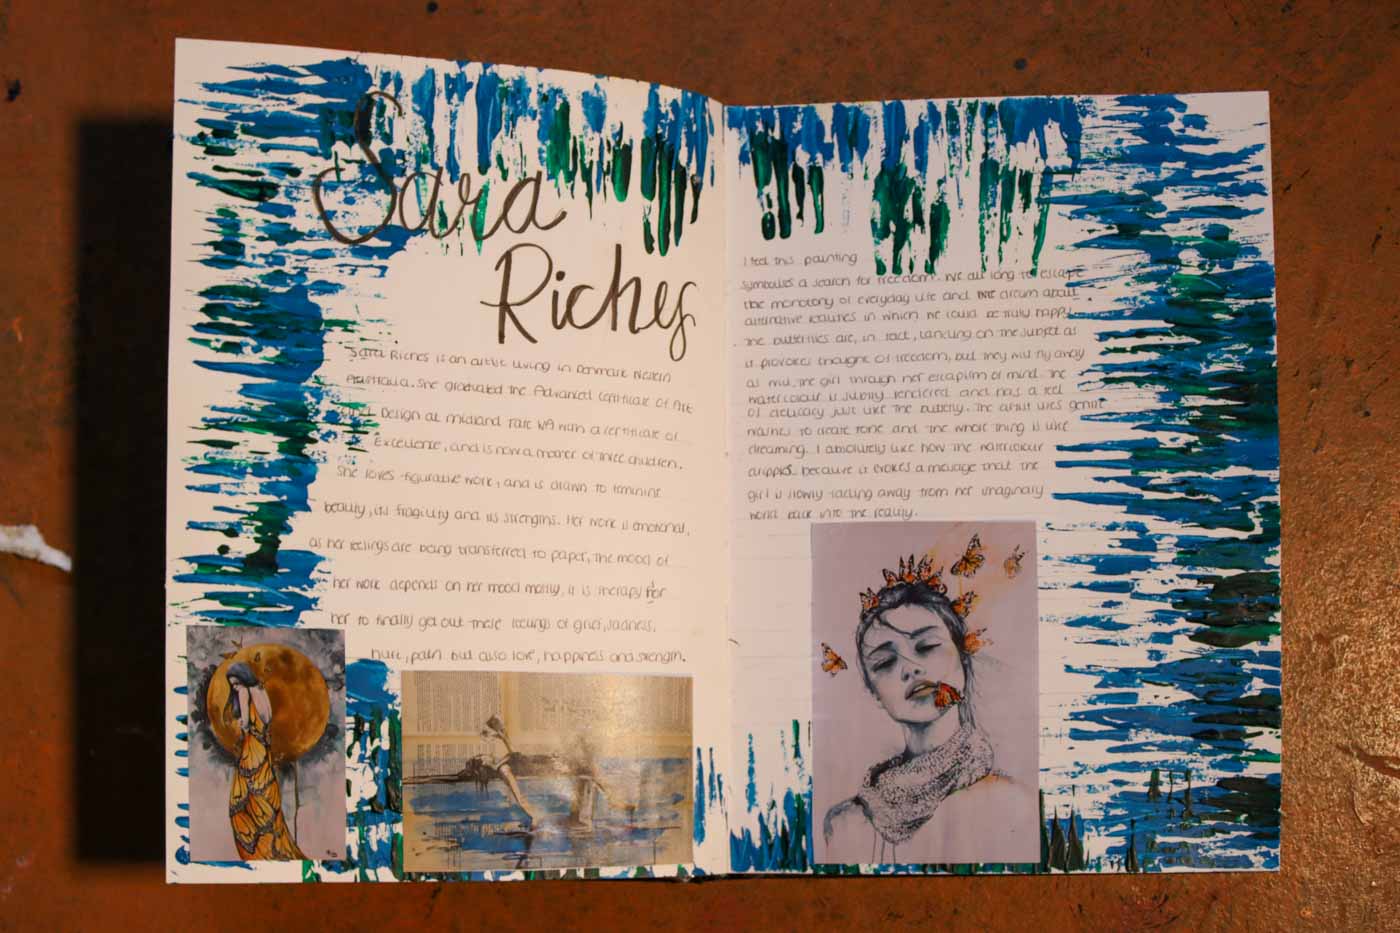 Sara
Riches
Sara Riches is an artist living in Denmark Western
Australia. She graduated the Advanced Certificate of Art
and Design at Midland Tafe WA with a certificate of
Excellence, and is now a mother of three children.
She loves figurative work, and is drawn to feminine
beauty, its fragility and its strengths. Her work is emotional,
as her feelings are being transferred to paper, the mood of
her work depends on her mood mostly, it is therapy for
her to finally get out these feelings of grief, sadness,
hurt, pain but also love, happiness and strength.
I feel this painting
symbolises a search for freedom. We all long to escape
the monotony of everyday life and we dream about
alternative realities in which we could be truly happy.
The butterflies are, in fact, landing on the subject as
it provokes thought of freedom, but they will fly away
as will, the girl through her escapism of mind. The
watercolour is subtly rendered and has a feel
of delicacy just like the butterfly. The artist uses gentle
washes to create tone and the whole thing is like
dreaming. I absolutely like how the watercolour
drippes because it evokes a message that the
girl is slowly fading away from her imaginary
world back into the reality.